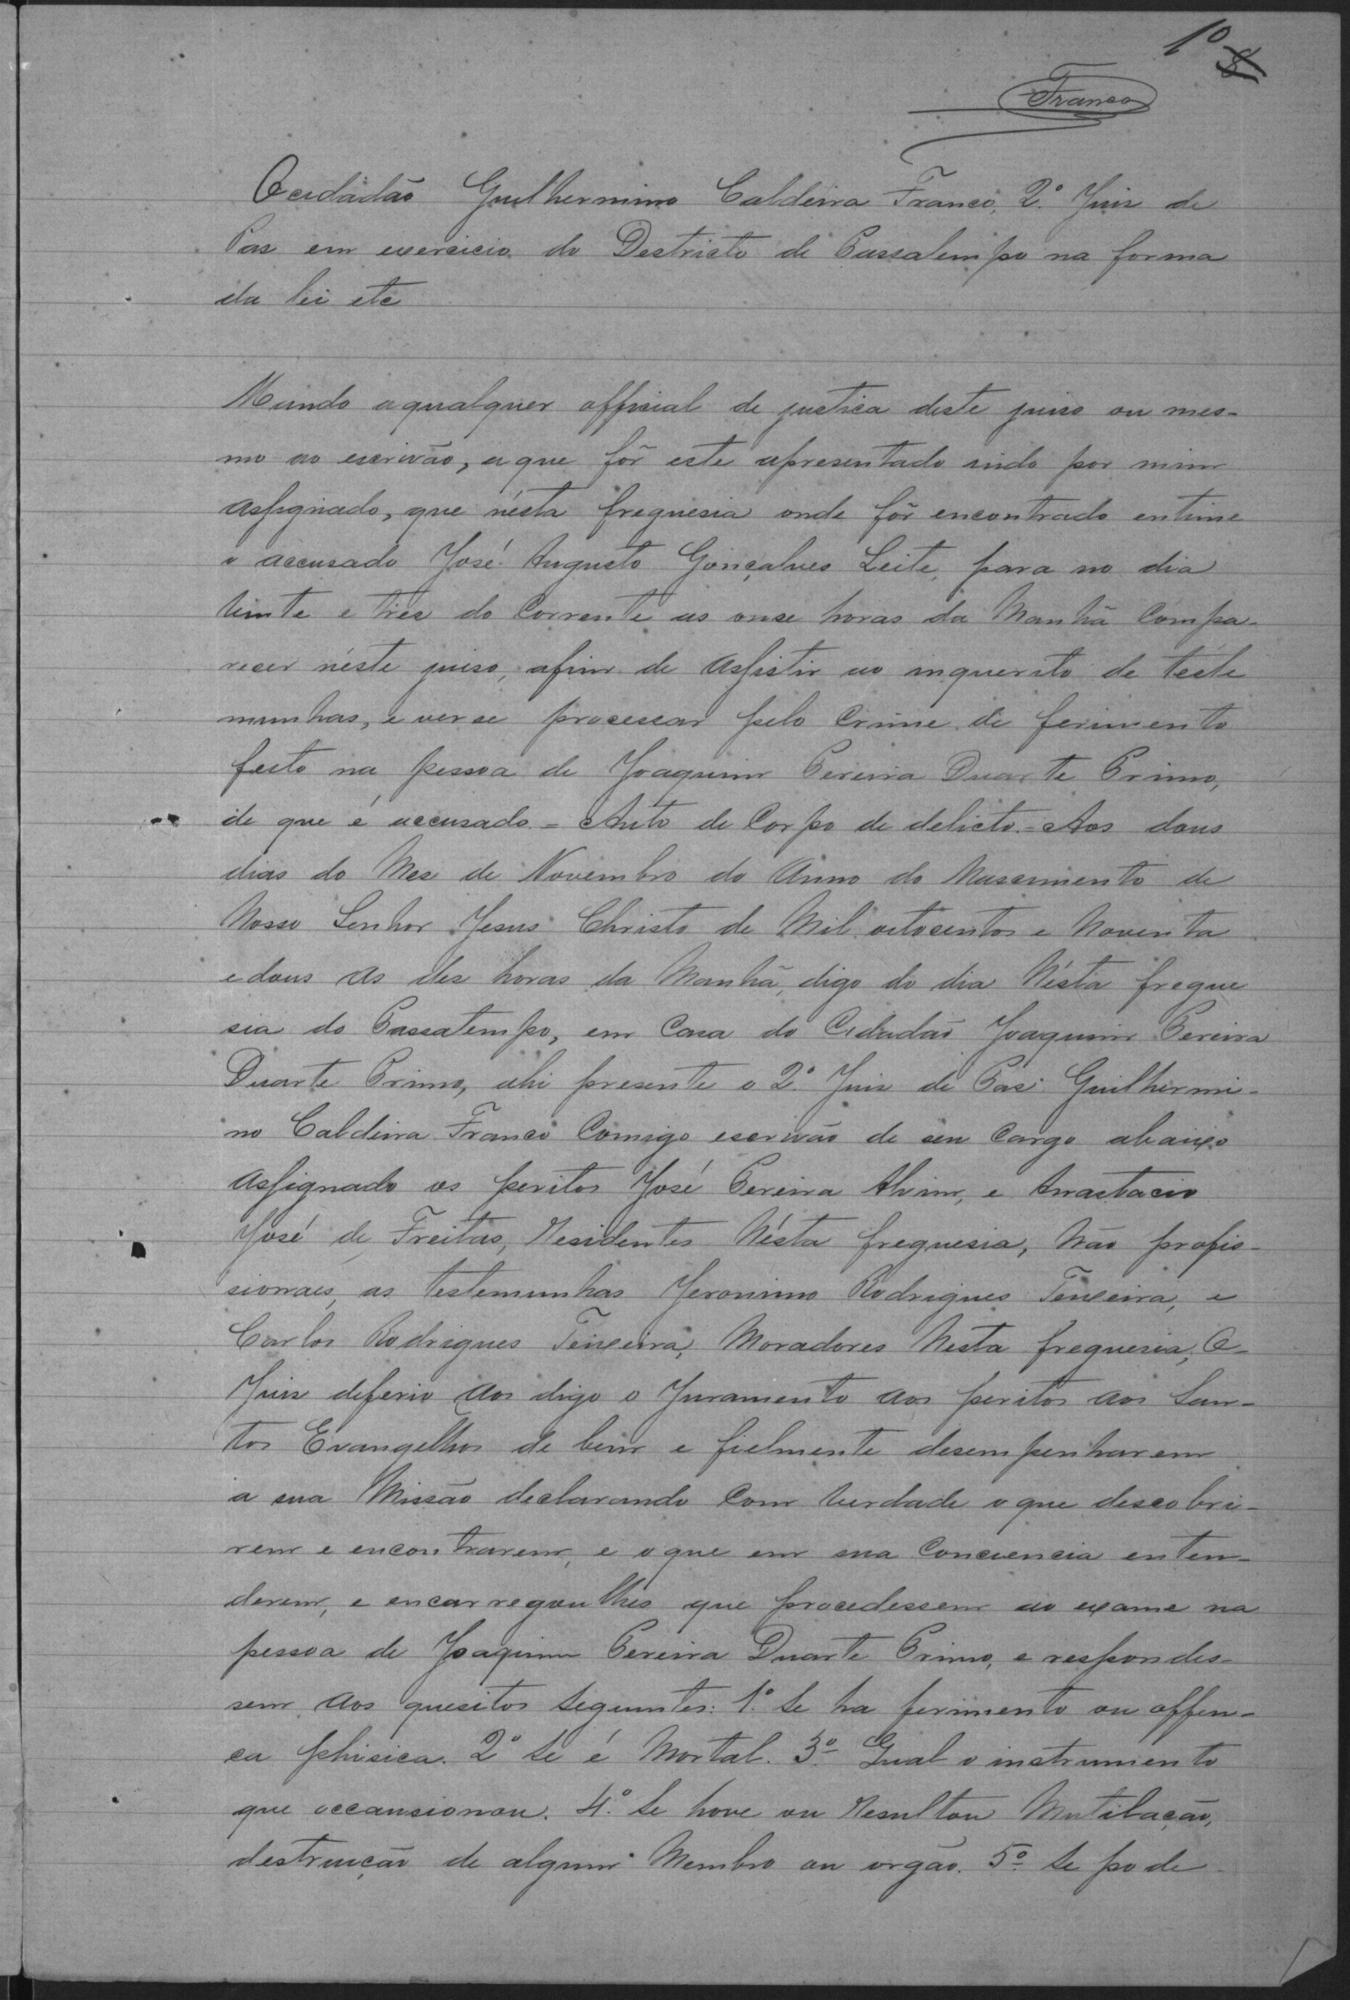 10
Franco
O cidadão Guilhermino Caldeira Franco, 2º Juiz de
Pas em exercicio do Destricto de Passatempo na forma
da lei etc
Mando aqualquer official de justica deste juiso ou mes-
mo ao escrivão, aque fôr este apresentado indo por mim
assignado, que nésta freguesia onde fôr encontrado entime
o accusado José Augusto Gonçalves Leite, para no dia
Vinte e tres do Corrente as onse horas da Manhã Compa-
recer néste juiso, afim de assistir ao inquerito de teste
munhas, e verse processar pelo Crime de ferimento
feito na pessoa de Joaquim Pereira Duarte Primo,
de que é accusado. = Auto de Corpo de delicto. = Aos dous
dias do Mes de Novembro do Anno do Nascimento de
Nosso Senhor Jesus Christo de Mil oitocentos e Noventa
e dous As des horas da Manhã, digo do dia Nésta fregue
sia do Passatempo, em Casa do Cidadão Joaquim Pereira
Duarte Primo, ahi presente o 2º Juiz de Pas Guilhermi-
no Caldeira Franco Comigo escrivão de seu Cargo abaixo
assignado os peritos José Pereira Alvim, e Anastacio
José de Freitas, Residentes Nésta freguesia, Não profis-
sionaes, as testemunhas Jeronimo Rodrigues Teixeira, e
Carlos Rodrigues Teixeira, Moradores Nesta freguesia, O
Juiz deferio Aos digo o Juramento aos peritos aos San-
tos Evangelhos de bem e fielmente desempenharem
a sua Missão declarando Com Verdade o que descobri-
rem e encontrarem, e o que em sua Conciencia enten-
derem, e encarregoulhes que procedessem ao exame na
pessoa de Joaquim Pereira Duarte Primo, e respondes-
sem Aos quesitos Seguintes: 1º Se ha ferimento ou offen-
ca phisica. 2º Se é Mortal. 3º Qual o instrumento
que occansionou. 4º Se hove ou Resultou Mutilacão,
destruição de algum Membro ou orgão. 5º Se pode